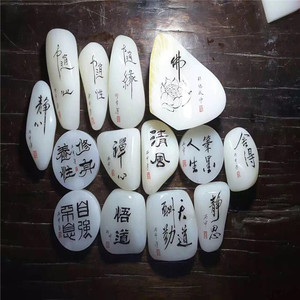 随心
随性
随缘
佛
静心
修身
养性
禅心
清风
笔墨
人生
舍得
自强
不息
悟道
天道
酬勤
静思